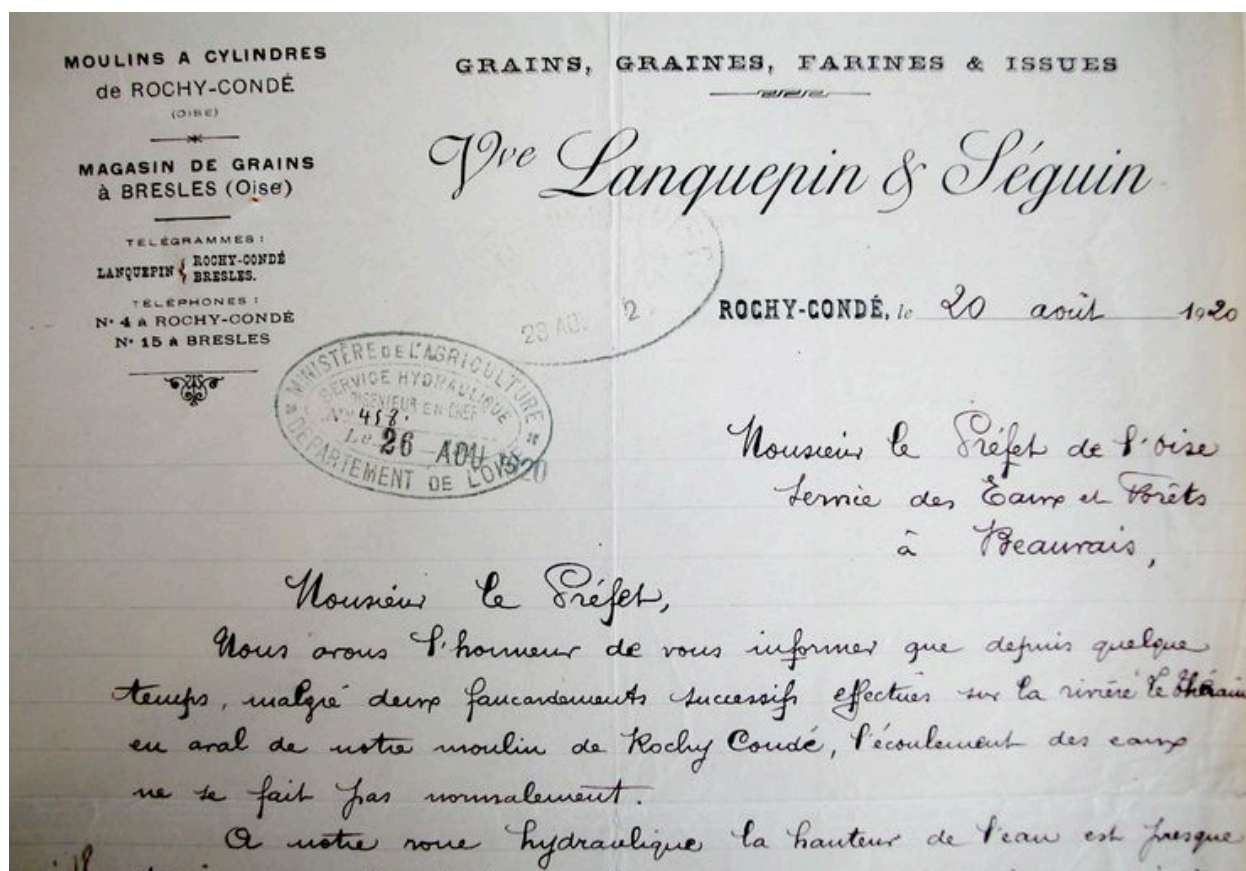 MOULINS A CYLINDRES
de ROCHY-CONDÉ
(OISE)
MAGASIN DE GRAINS
à BRESLES (Oise)
TÉLÉGRAMMES :
LANQUEPIN { ROCHY-CONDÉ
BRESLES.
TÉLÉPHONES :
N° 4 A ROCHY-CONDÉ
N° 15 A BRESLES
GRAINS, GRAINES, FARINES & ISSUES
Vve Lanquepin & Séguin
ROCHY-CONDÉ, le 20 août 1920
MINISTÈRE DE L'AGRICULTURE
SERVICE HYDRAULIQUE
INGÉNIEUR EN CHEF
N° 458.
Le 26 AOU 1920
DÉPARTEMENT DE L'OISE
Monsieur le Préfet de l'Oise
Service des Eaux et Forêts
à Beauvais,
Monsieur le Préfet,
Nous avons l'honneur de vous informer que depuis quelque
temps, malgré deux faucardements successifs effectués sur la rivière le Thérain
en aval de notre moulin de Rochy Condé, l'écoulement des eaux
ne se fait pas normalement.
A notre roue hydraulique la hauteur de l'eau est presque